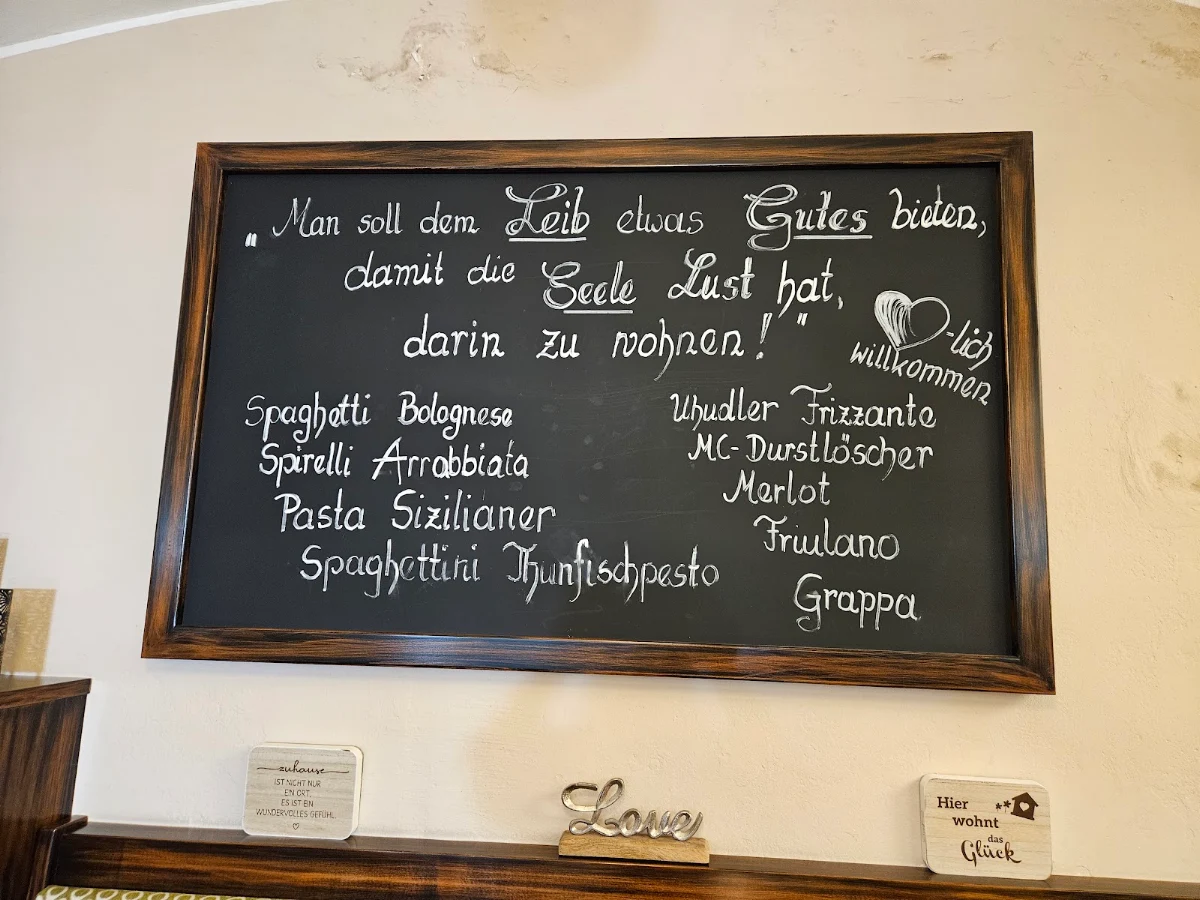 „Man soll dem Leib etwas Gutes bieten,
damit die Seele Lust hat,
darin zu wohnen!"
-lich
willkommen
Spaghetti Bolognese
Spirelli Arrabbiata
Pasta Sizilianer
Spaghettini Thunfischpesto
Uhudler Frizzante
MC-Durstlöscher
Merlot
Friulano
Grappa
zuhause
IST NICHT NUR
EIN ORT,
ES IST EIN
WUNDERVOLLES GEFÜHL.
Love
Hier
wohnt
das
Glück